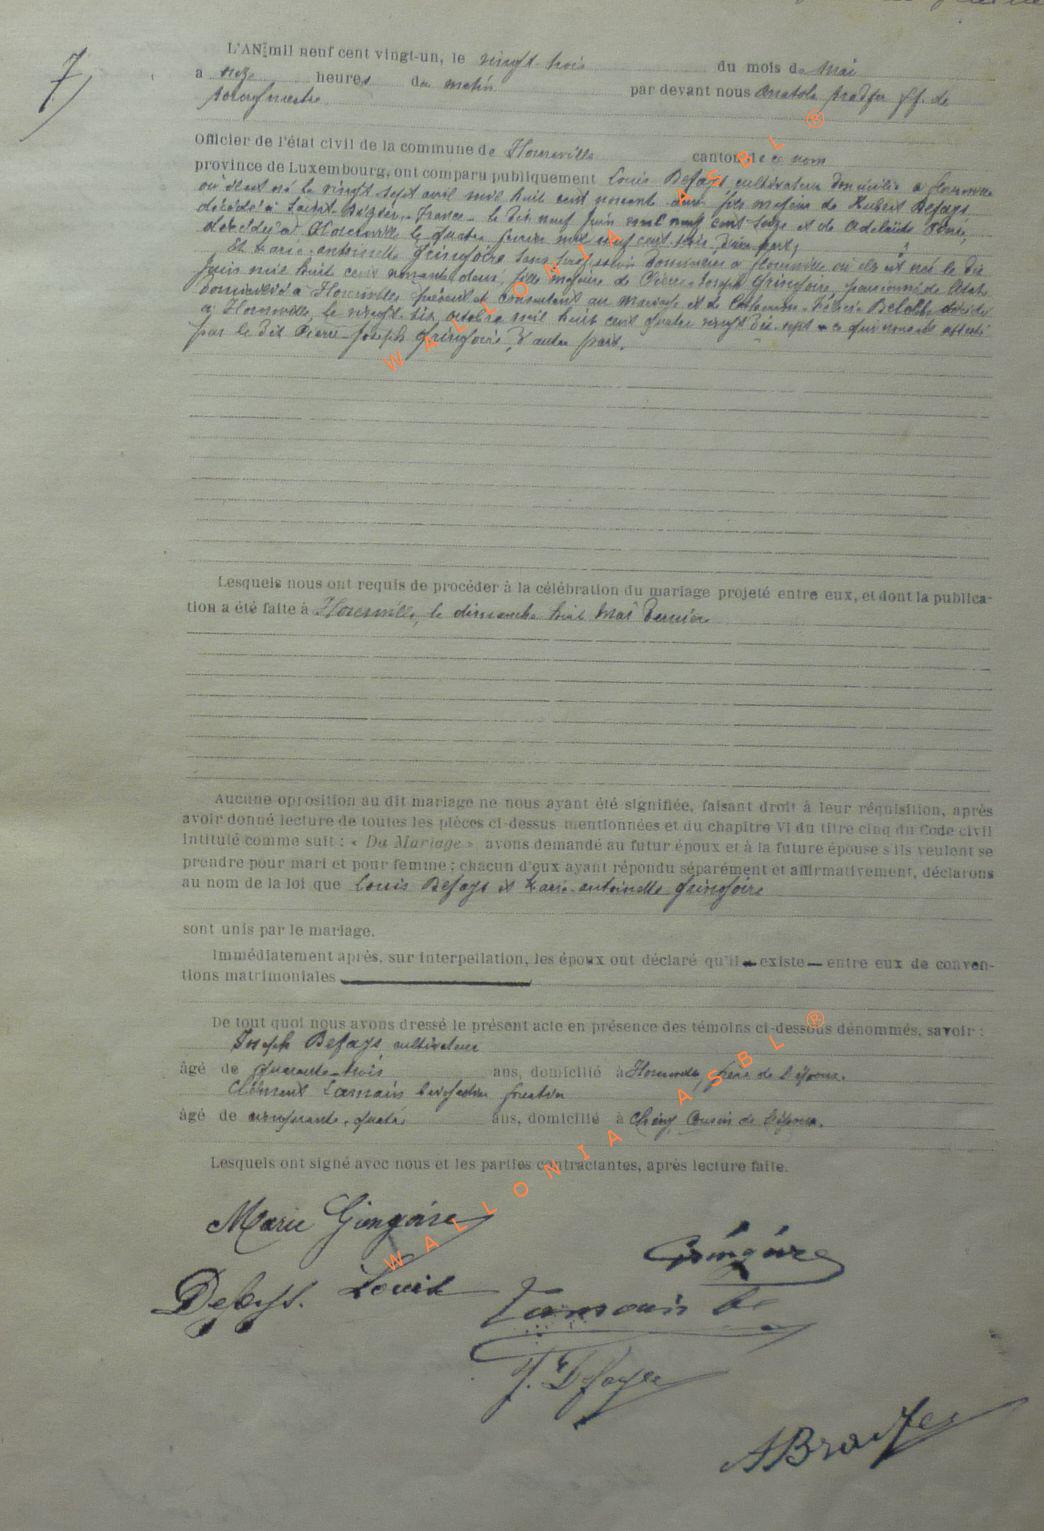 7)
L'AN mil neuf cent vingt-un, le vingt trois du mois de Mai
à onze heures du matin par devant nous Anatole Bradfer ff. de
bourgmestre
Officier de l'état civil de la commune de Houmville canton de ce nom
province de Luxembourg, ont comparu publiquement Louis Defays cultivateur domicilié à
où il est né le vingt sept avril mil huit cent nonante deux fils majeur de Hubert Defays
décédé à Saint-Dizier, France le dix neuf Juin mil neuf cent seize et de Adélaïde
décédée à le quatre février mil neuf cent trois, d'une part;
Et Marie-antoinette Gringoire sans profession domiciliée à où elle est née le dix
Juin mil huit cent nonante deux, fille majeure de Pierre-Joseph Gringoire, pensionné de l'Etat
domicilié à présent et consentant au mariage et de Félicie décédée
à le vingt six octobre mil huit cent quatre vingt dix-sept ce qui nous est attesté
par le dit Pierre-Joseph Gringoire, d'autre part.
Lesquels nous ont requis de procéder à la célébration du mariage projeté entre eux, et dont la publica-
tion a été faite à le dimanche huit Mai dernier
Aucune opposition au dit mariage ne nous ayant été signifiée, faisant droit à leur réquisition, après
avoir donné lecture de toutes les pièces ci-dessus mentionnées et du chapitre VI du titre cinq du Code civil
intitulé comme suit : « Du Mariage » avons demandé au futur époux et à la future épouse s'ils veulent se
prendre pour mari et pour femme ; chacun d'eux ayant répondu séparément et affirmativement, déclarons
au nom de la loi que Louis Defays et Marie-antoinette Gringoire
sont unis par le mariage.
Immédiatement après, sur interpellation, les époux ont déclaré qu'il existe entre eux de conven-
tions matrimoniales
De tout quoi nous avons dressé le présent acte en présence des témoins ci-dessous dénommés, savoir :
Joseph Defays, cultivateur
âgé de quarante-trois ans, domicilié à frère de l'époux.
Clément Lamouis
âgé de cinquante-quatre ans, domicilié à Chiny, Cousin de l'épouse.
Lesquels ont signé avec nous et les parties contractantes, après lecture faite.
Marie Gringoire
Gringoire
Defays. Louis
Lamouis
J. Defays
ABradfer
WALLONIA ASBL ®
WALLONIA ASBL ®